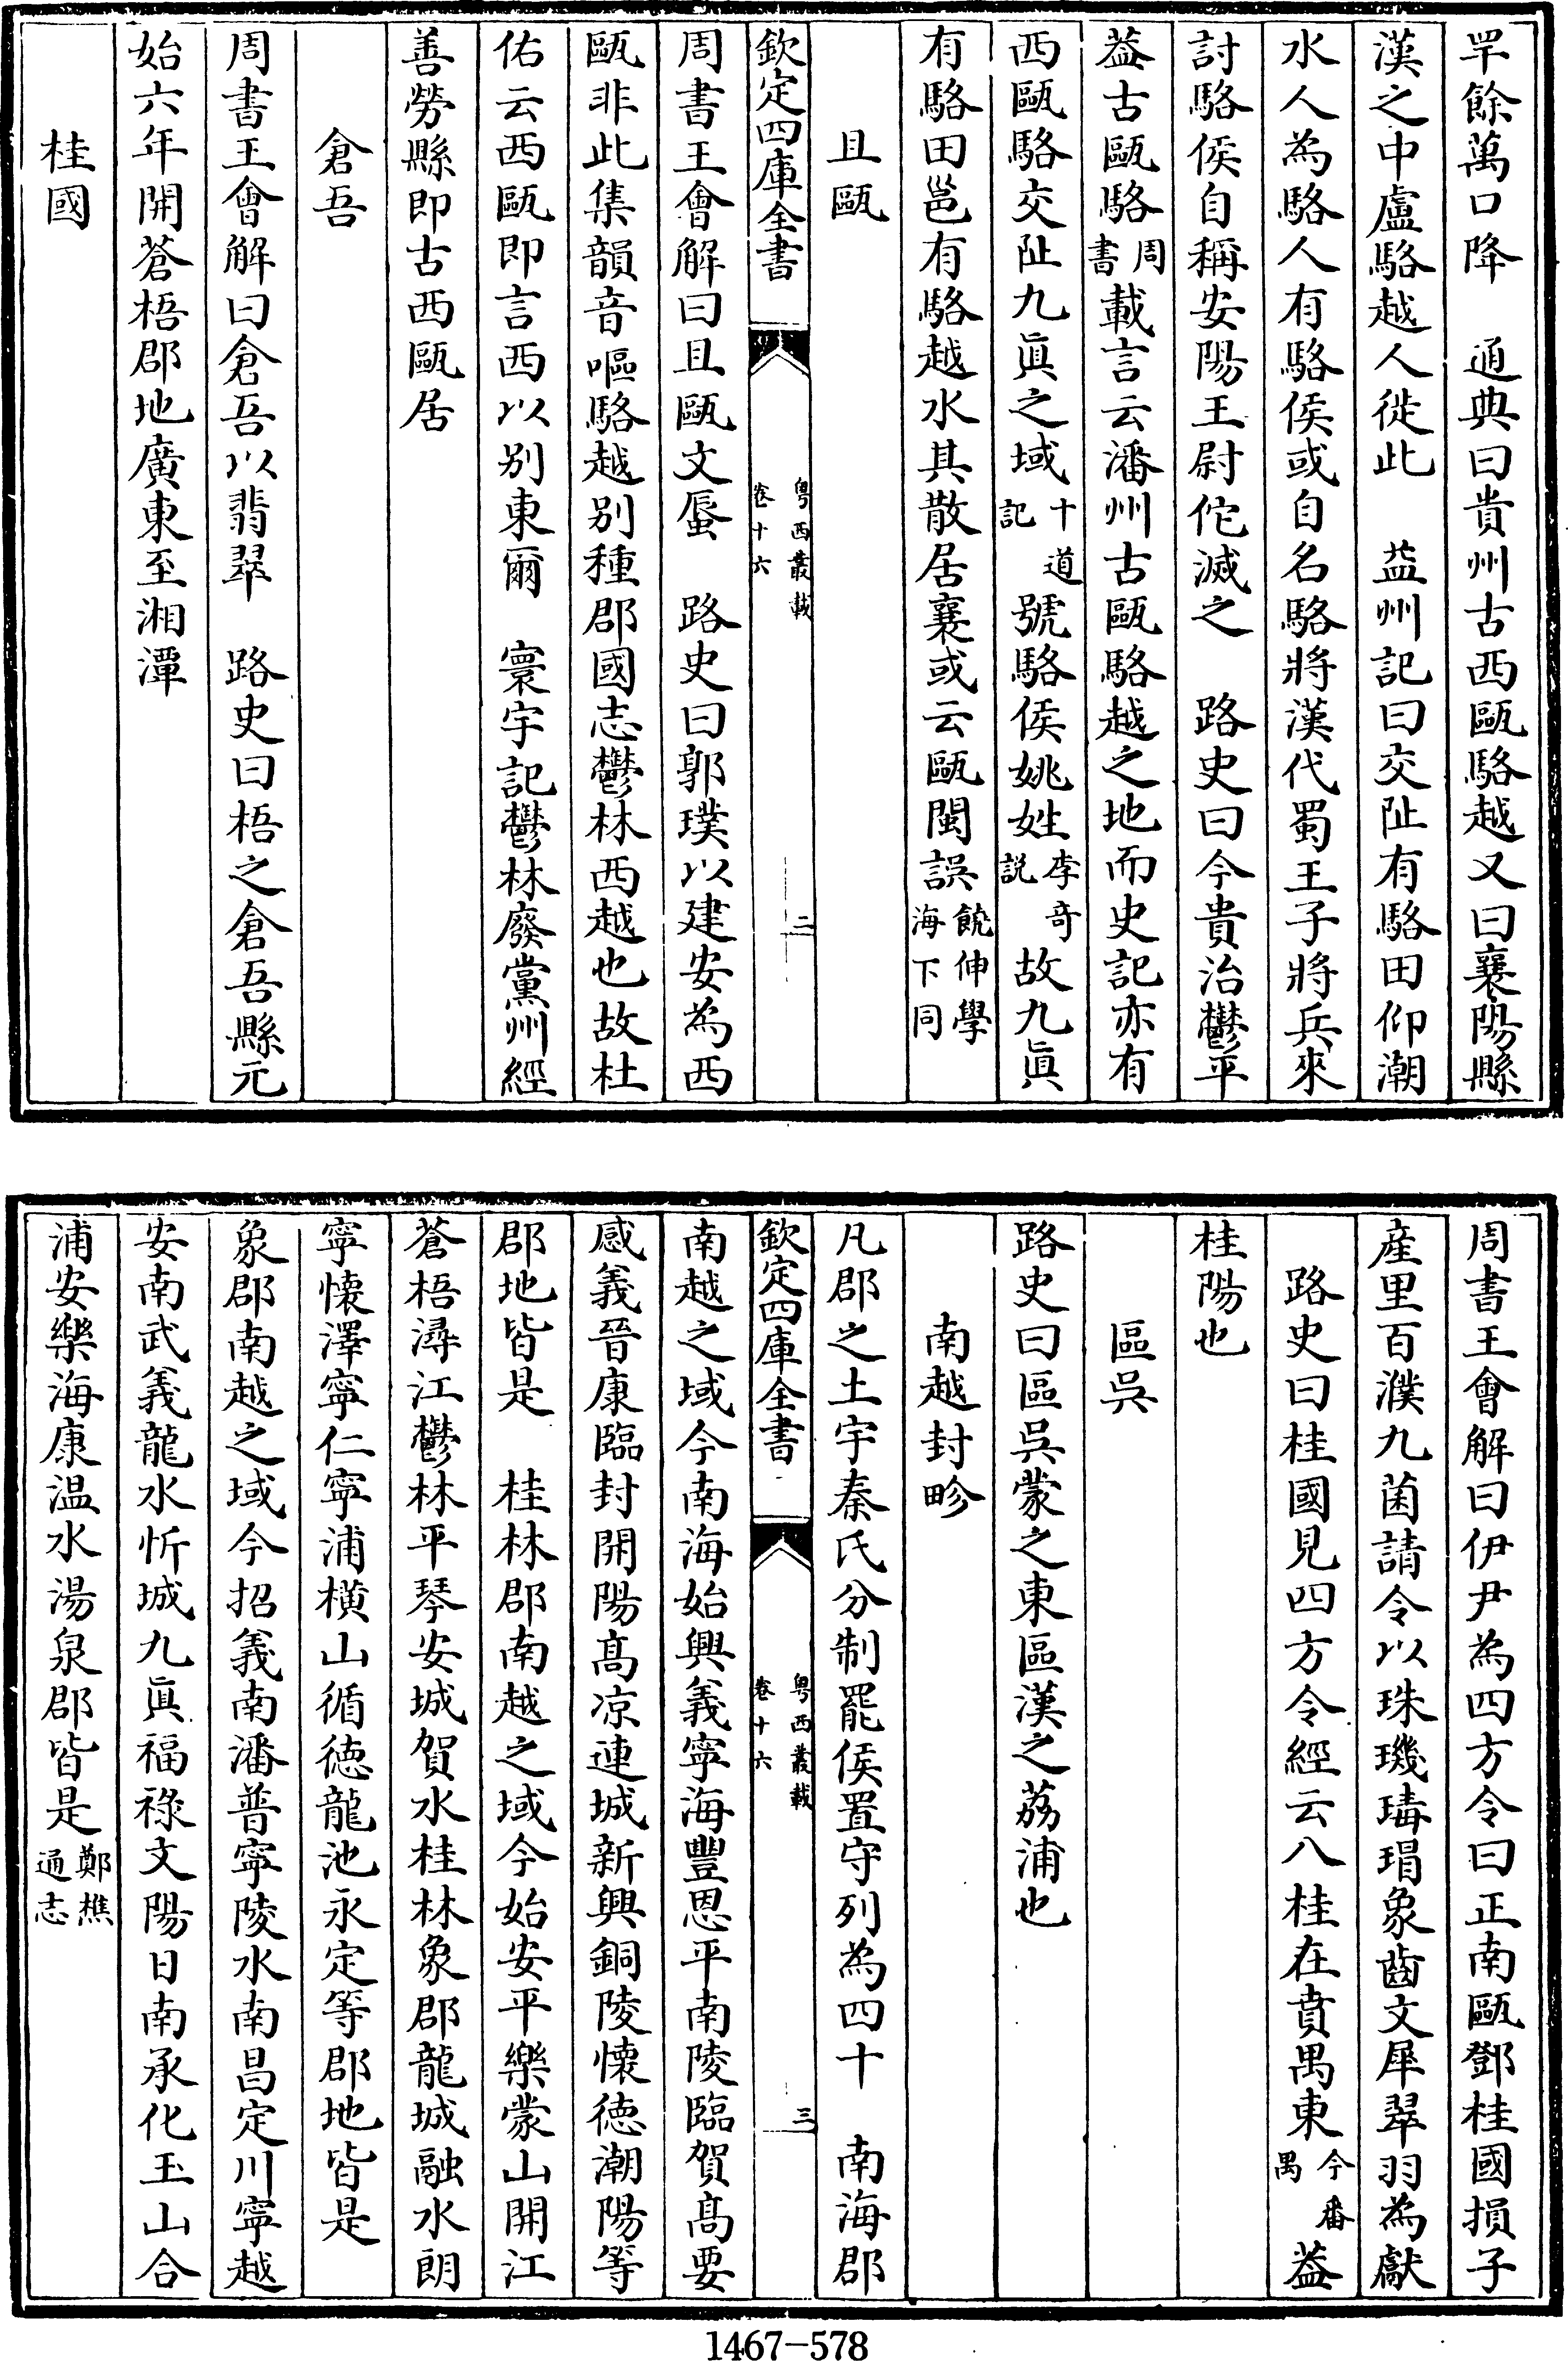 罕餘萬口降　通典曰貴州古西甌駱越又曰襄陽縣
漢之中盧駱越人徙此　益州記曰交阯有駱田仰潮
水人為駱人有駱侯或自名駱將漢代蜀王子將兵來
討駱侯自稱安陽王尉佗滅之　路史曰今貴治鬱平
葢古甌駱周書載言云潘州古甌駱越之地而史記亦有
西甌駱交阯九眞之域十道記號駱侯姚姓李奇説故九眞
有駱田邕有駱越水其散居襄或云甌閩誤饒伸學海下同
且甌
欽定四庫全書
粤西叢載
卷十六
二
周書王會解曰且甌文蜃　路史曰郭璞以建安為西
甌非此集韻音嘔駱越别種郡國志鬱林西越也故杜
佑云西甌即言西以别東爾　寰宇記鬱林廢黨州經
善勞縣即古西甌居
倉吾
周書王會解曰倉吾以翡翠　路史曰梧之倉吾縣元
始六年開蒼梧郡地廣東至湘潭
桂國
周書王會解曰伊尹為四方令曰正南甌鄧桂國損子
産里百濮九菌請令以珠璣瑇瑁象齒文犀翠羽為獻
路史曰桂國見四方令經云八桂在賁禺東今番禺葢
桂陽也
區吳
路史曰區吳蒙之東區漢之荔浦也
南越封畛
凡郡之土宇秦氏分制罷侯置守列為四十　南海郡
欽定四庫全書
粤西叢載
卷十六
三
南越之域今南海始興義寧海豐恩平南陵臨賀髙要
感義晉康臨封開陽髙凉連城新興銅陵懷德潮陽等
郡地皆是　桂林郡南越之域今始安平樂蒙山開江
蒼梧潯江鬱林平琴安城賀水桂林象郡龍城融水朗
寧懷澤寧仁寧浦横山循德龍池永定等郡地皆是
象郡南越之域今招義南潘普寧陵水南昌定川寧越
安南武義龍水忻城九眞福禄文陽日南承化玉山合
浦安樂海康温水湯泉郡皆是鄭樵通志
1467-578